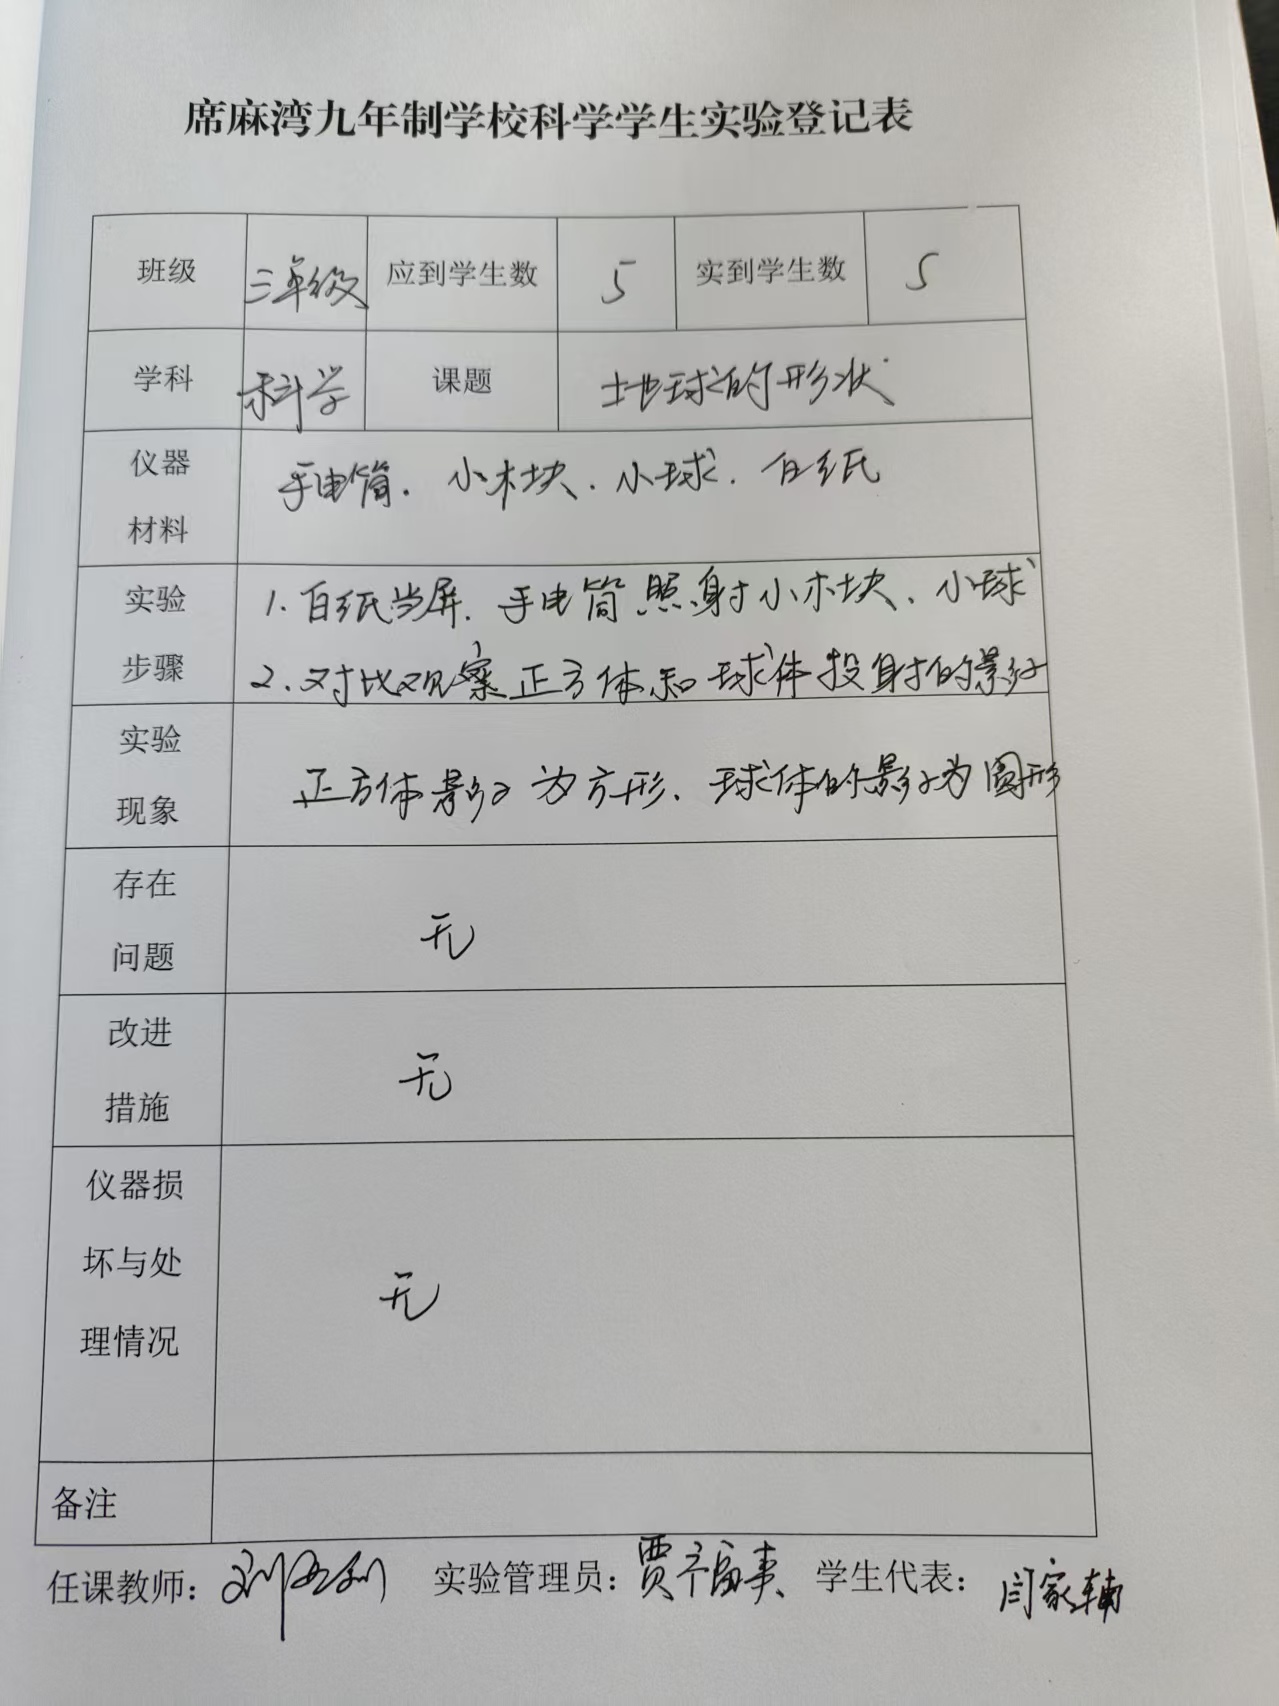 席麻湾九年制学校科学学生实验登记表
班级 三年级 应到学生数 5 实到学生数 5
学科 科学 课题 地球的形状
仪器
材料
手电筒、小木块、小球、白纸
实验
步骤
1、白纸当屏、手电筒照射小木块、小球
2、对比观察正方体和球体投射的影子
实验
现象
正方体影子为方形、球体的影子为圆形
存在
问题
无
改进
措施
无
仪器损
坏与处
理情况
无
备注
任课教师: 实验管理员: 学生代表: 闫家辅